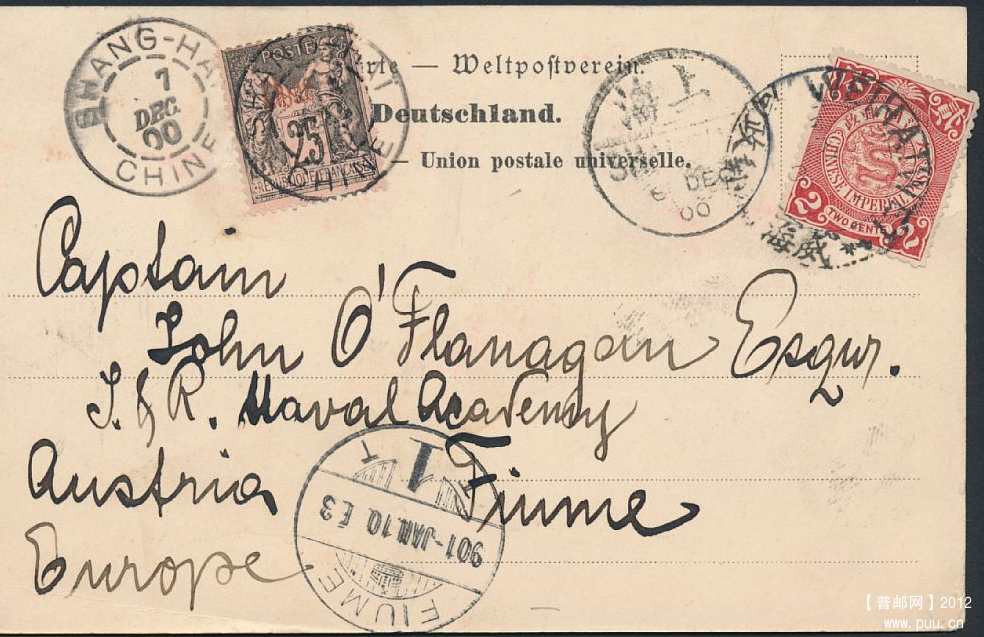 SHANG-HAI
7
DEC.
00
CHINE
POSTES
Chine
25
REPUBLIQUE FRANÇAISE
— Weltpostverein.
Deutschland.
— Union postale universelle.
上
海
DEC
00
WEIHAIWEI
海威
CHINESE IMPERIAL POST
2 2
TWO CENTS
Captain
John O'Flanagan Esqur.
I. & R. Naval Academy
Austria Fiume
Europe
T 1 T
901-JAN.10. E3
FIUME
【普邮网】2012
www.puu.cn